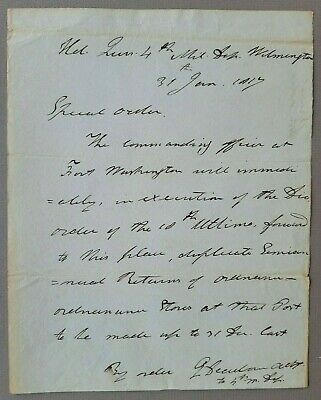 Hd. Qurs. 4th Mil. Dep. Wilmington
31 Jan. 1817
Special order.
The commanding officer at
Fort Washington will immedi
=ately, in execution of the Div.
order of the 10th Ultimo, forward
to this place, duplicate Semian
=nual Returns of ordnance &
ordnance Stores at that Post
to be made up to 31 Dec. last
By order
to 4th M. Dp.